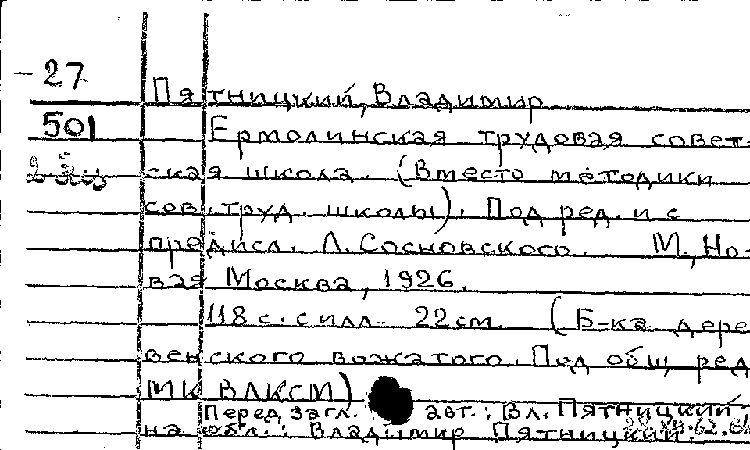 -27
Пятницкий, Владимир
501
Ермолинская трудовая совет-
ская школа. (Вместо методики
сов. труд. школы). Под ред. и с
предисл. Л. Сосновского. М., Но-
вая Москва, 1926.
118 с. с илл. 22 см. (Б-ка дере
венского вожатого. Под общ. ред
МК ВЛКСМ)
Перед загл. авт.: Вл. Пятницкий.
на обл.: Владимир Пятницкий.